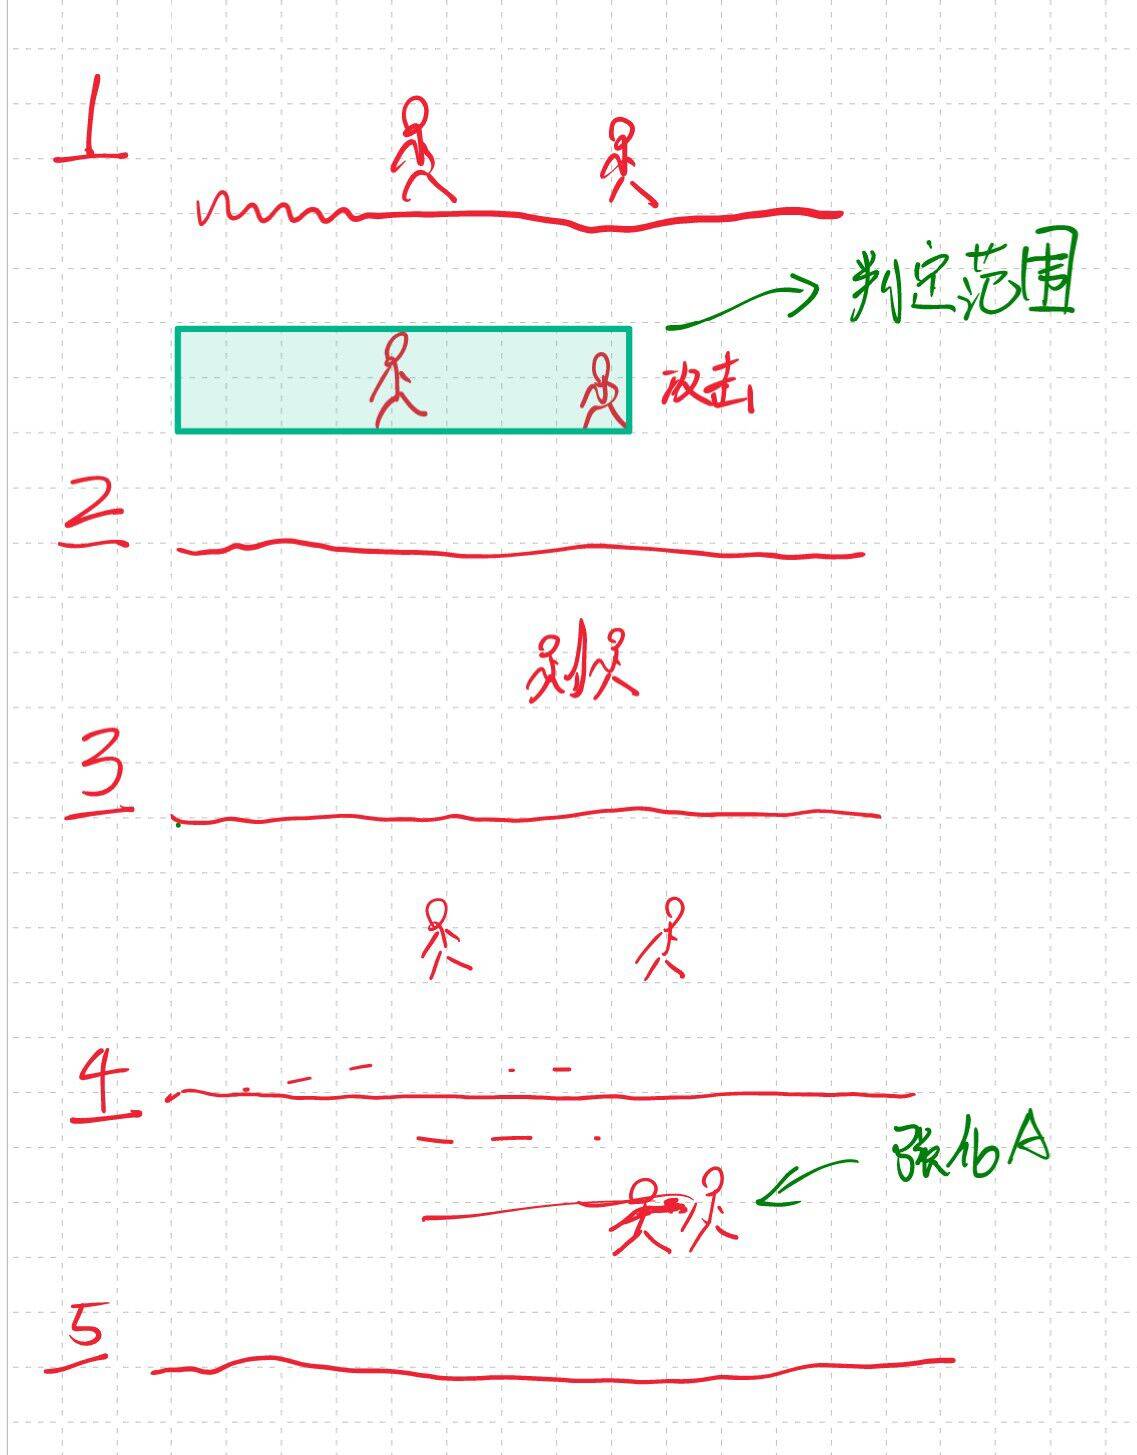 1
判定范围
攻击
2
3
4
强化A
5